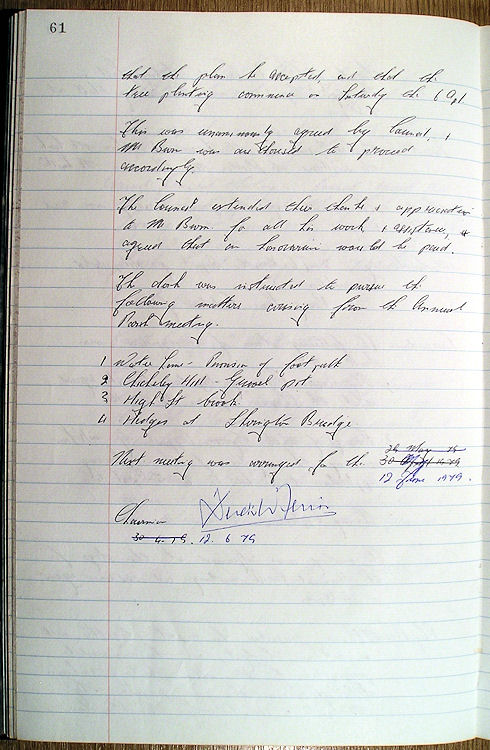 61
that the plan be accepted, and that the
tree planting commence on Saturday the 6 Oct.
This was unanimously agreed by Council, &
Mr Brown was authorised to proceed
accordingly.
The Council extended their thanks & appreciation
to Mr Brown for all his work & assistance, &
agreed that an honorarium would be paid.
The clerk was instructed to pursue the
following matters arising from the Annual
Parish meeting.
1 Water Lane - Provision of footpath
2 Chicheley Hill - Gravel pit
3 High St brook
4 Hedges at Sherington Bridge
29 May 79
Next meeting was arranged for the 30 April 1979
12 June 1979.
Chairman
30 4. 79. 12. 6 79